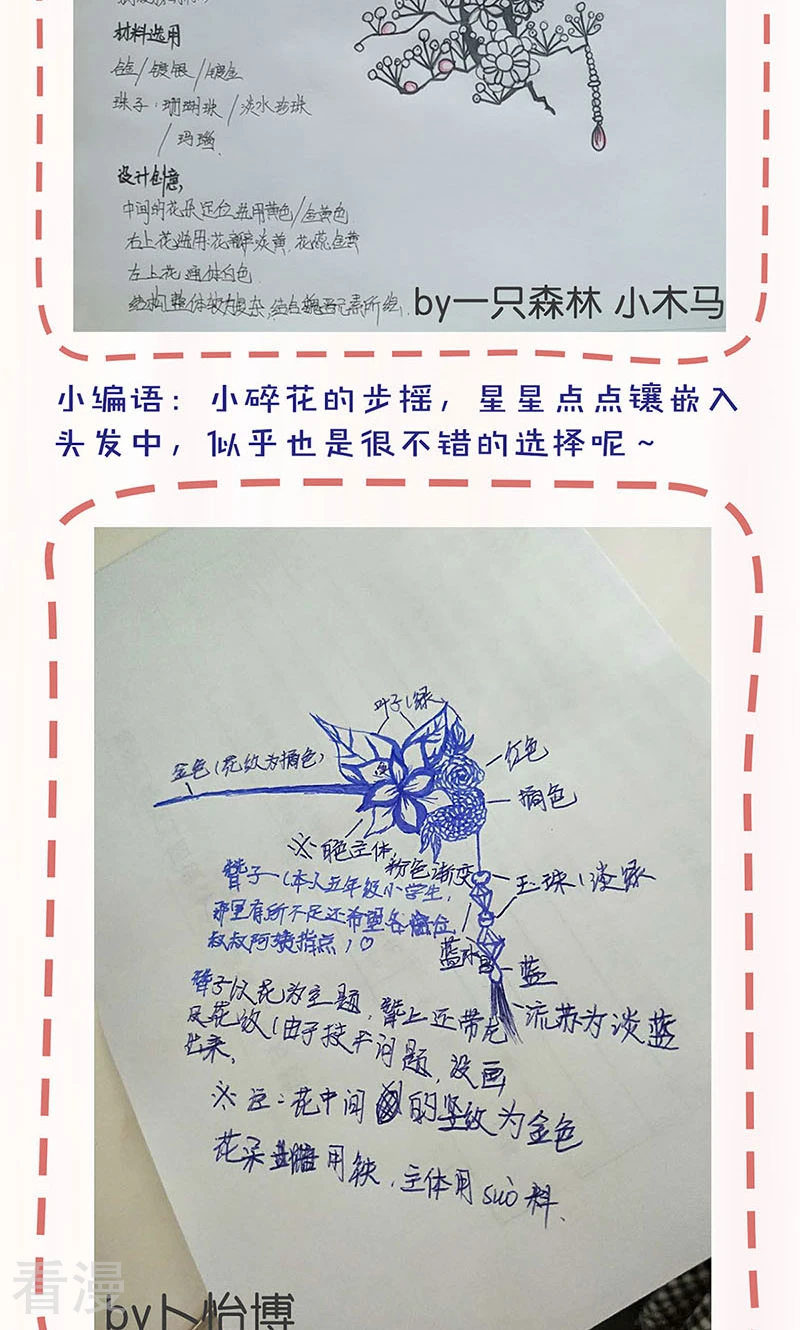 材料选用
合金/镀银/镀金
珠子:珊瑚珠/淡水珍珠
/玛瑙
设计创意,
中间的花朵定位选用黄色/金黄色
右上花选用:花瓣淡黄,花蕊金黄
左上花通体白色
by一只森林 小木马
小编语:小碎花的步摇,星星点点镶嵌入
头发中,似乎也是很不错的选择呢~
叶子(绿
金色(花纹为橘色)
红色
橘色
粉色渐变
玉珠(淡绿
(本人五年级小学生,
那里有所不足还希望各位
叔叔阿姨指点)♡
蓝水晶
蓝
流苏为淡蓝
子以花为主题,
上还带龙
及花纹(由于技术问题,没画
出来,
※注:花中间的竖纹为金色
花朵
用铁,主体用suò料.
看漫
by卜怡博